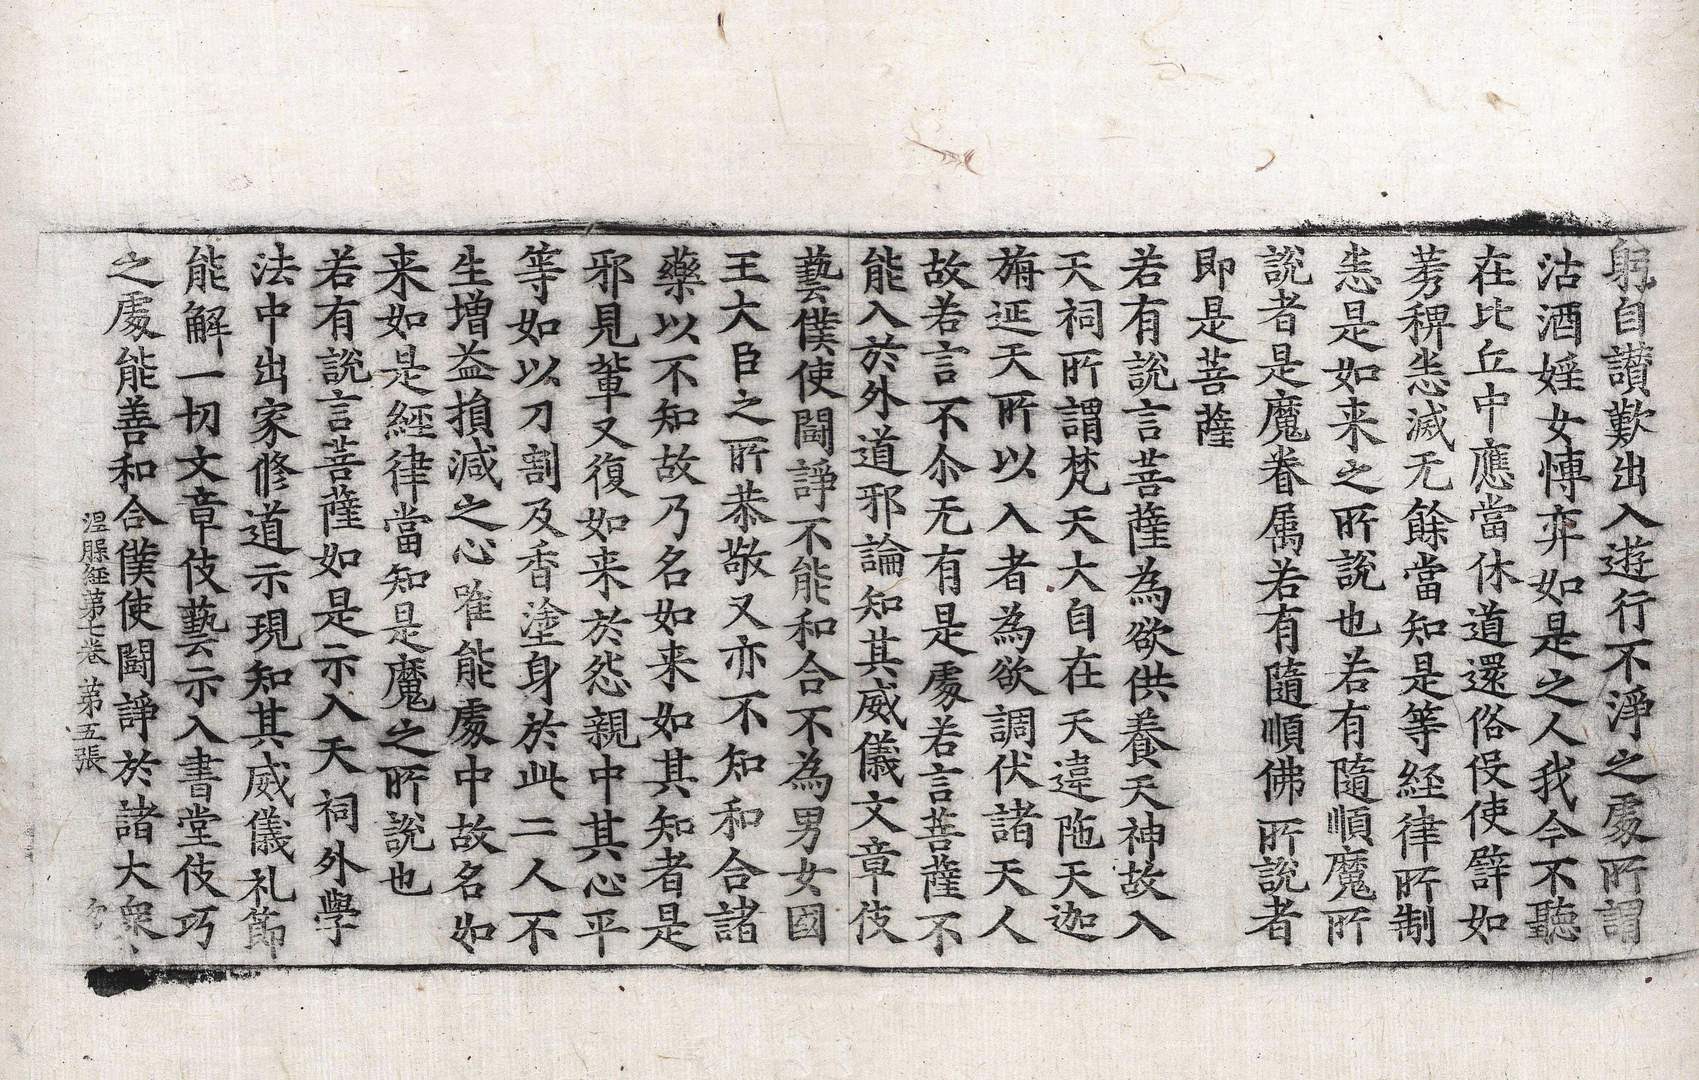 躬自讃歎出入遊行不淨之處所謂
沽酒婬女慱弈如是之人我今不聽
在比丘中應當休道還俗伇使譬如
莠稗悉滅无餘當知是等経律所制
悉是如来之所說也若有隨順魔所
說者是魔眷属若有隨順佛所說者
即是菩薩
若有說言菩薩為欲供養天神故入
天祠所謂梵天大自在天違陁天迦
旃延天所以入者為欲調伏諸天人
故若言不尒无有是處若言菩薩不
能入於外道邪論知其威儀文章伎
藝僕使鬪諍不能和合不為男女國
王大臣之所恭敬又亦不知和合諸
藥以不知故乃名如来如其知者是
邪見軰又復如来於怨親中其心平
等如以刀割及香塗身於此二人不
生增益損减之心唯能處中故名如
来如是經律當知是魔之所說也
若有說言菩薩如是示入天祠外學
法中出家修道示現知其威儀礼節
能解一切文章伎藝示入書堂伎巧
之處能善和合僕使鬪諍於諸大衆
湼腺経第七卷 第五張